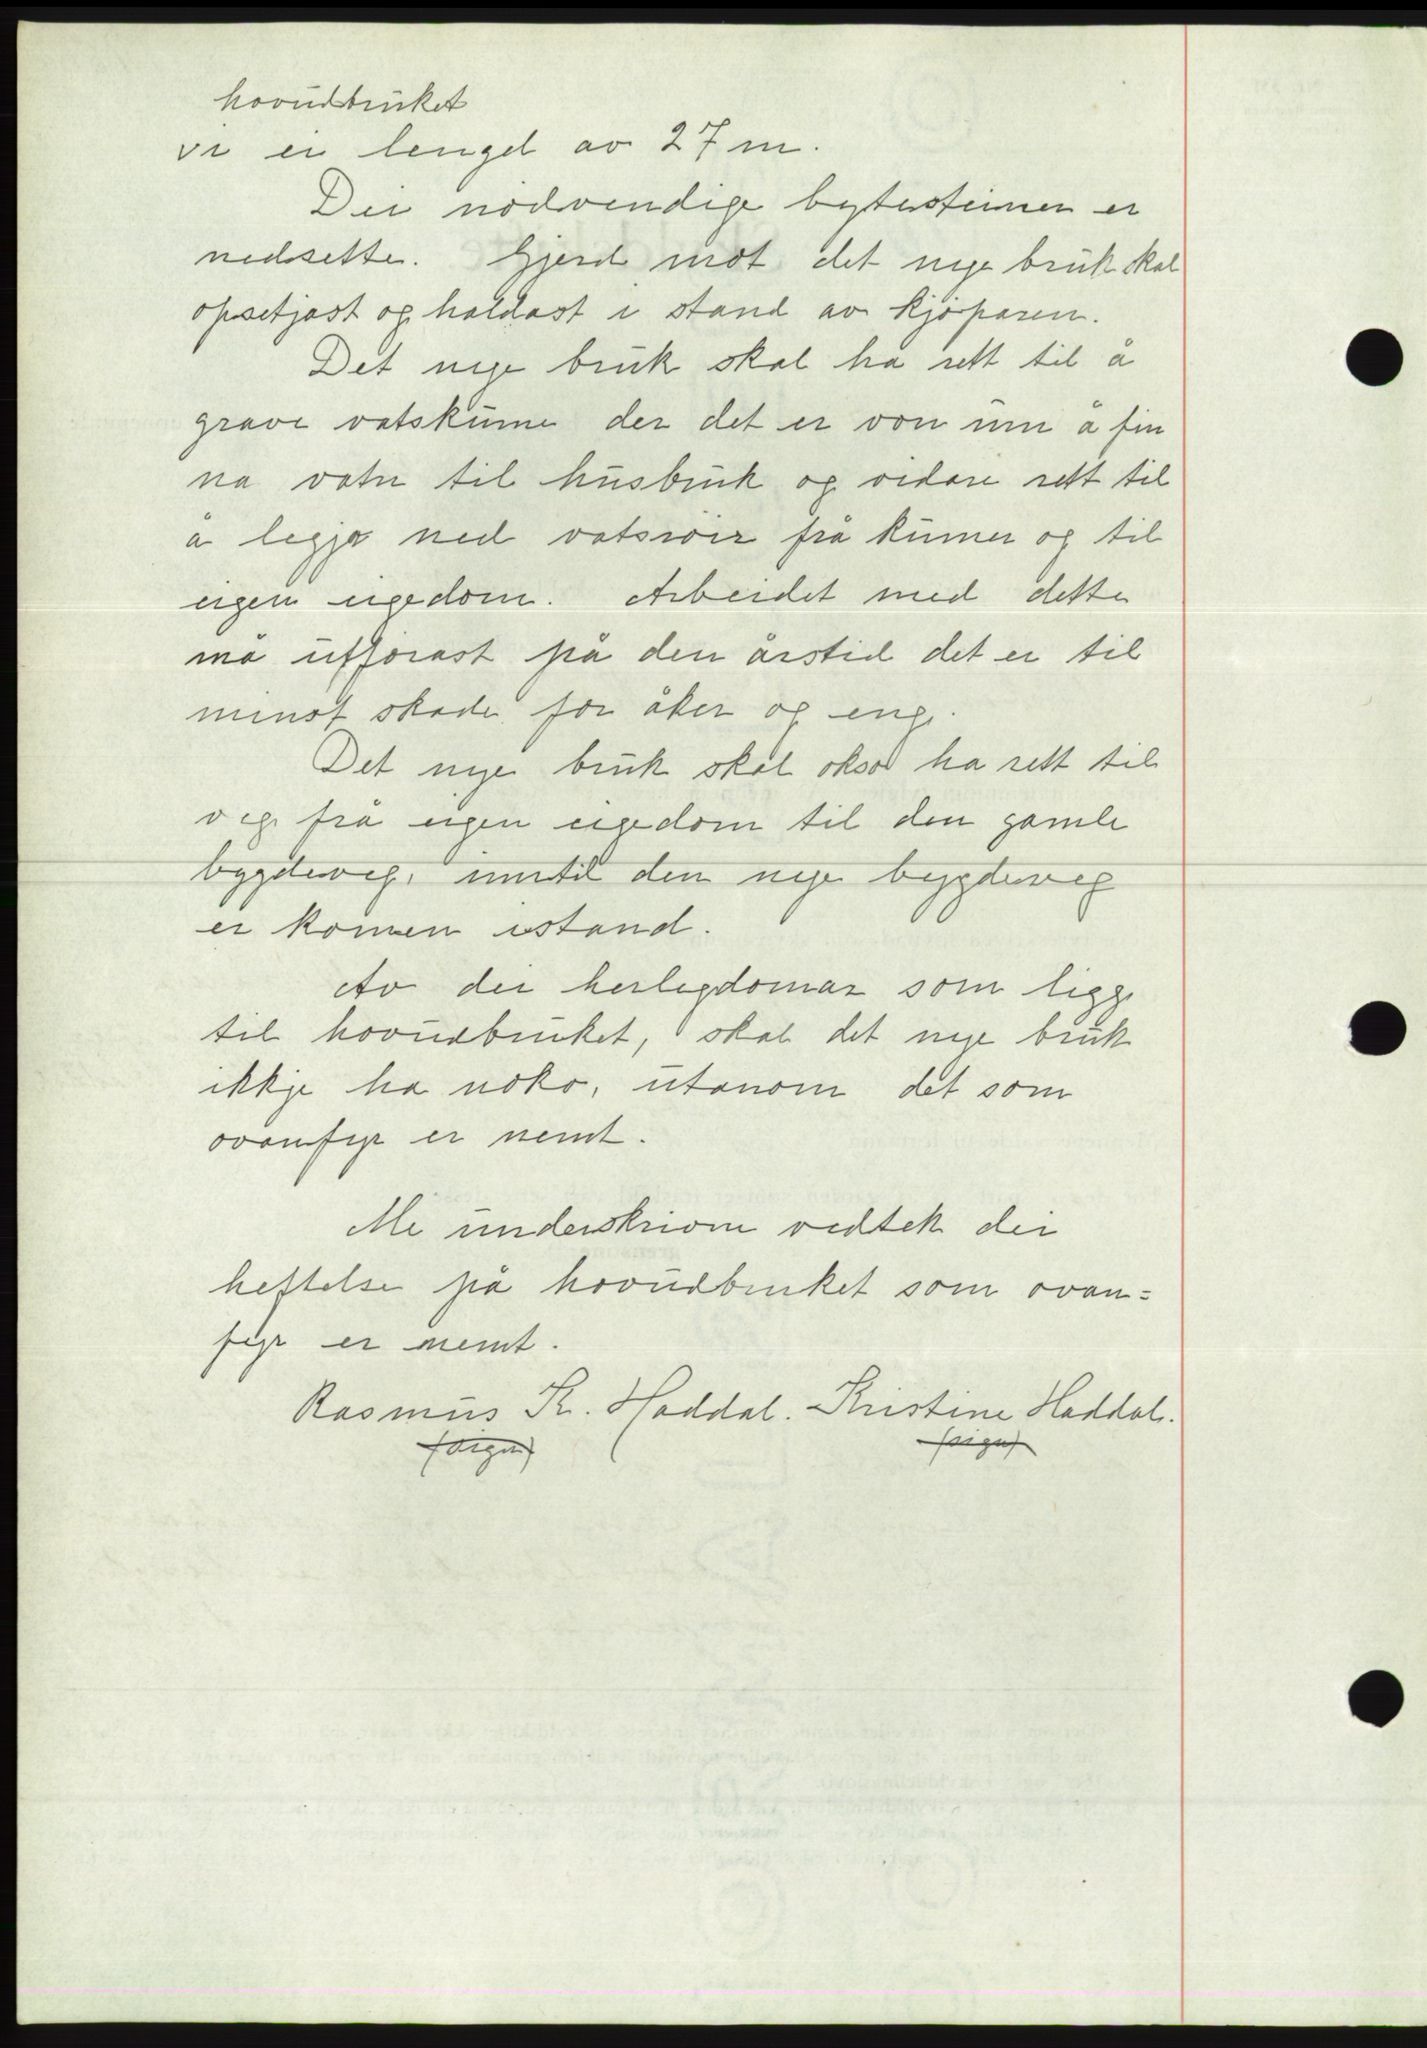 hovudbruket
vi ei lengd av 27 m.
Dei nödvendige bytesteiner er
nedsette. Gjerd mot det nye bruk skal
opsetjast og haldast i stand av kjöparen.
Det nye bruk skal ha rett til å
grave vatskume der det er von um å fin
na vatn til husbruk og vidare rett til
å legja ned vatsröir frå kumer og til
eigen eigedom. Arbeidet med dette
må utförast på den årstid det er til
minst skade for åker og eng.
Det nye bruk skal okso ha rett til
veg frå eigen eigedom til den gamle
bygdeveg, inntil den nye bygdeveg
er komen istand.
Av dei herlegdomar som ligg
til hovudbruket, skal det nye bruk
ikkje ha noko, utanom det som
ovanfyr er nemt.
Me underskrivne vedtek dei
heftelse på hovudbruket som ovan=
fyr er nemt.
Rasmus Kr. Haddal. Kristine Haddal.
(sign) (sign)